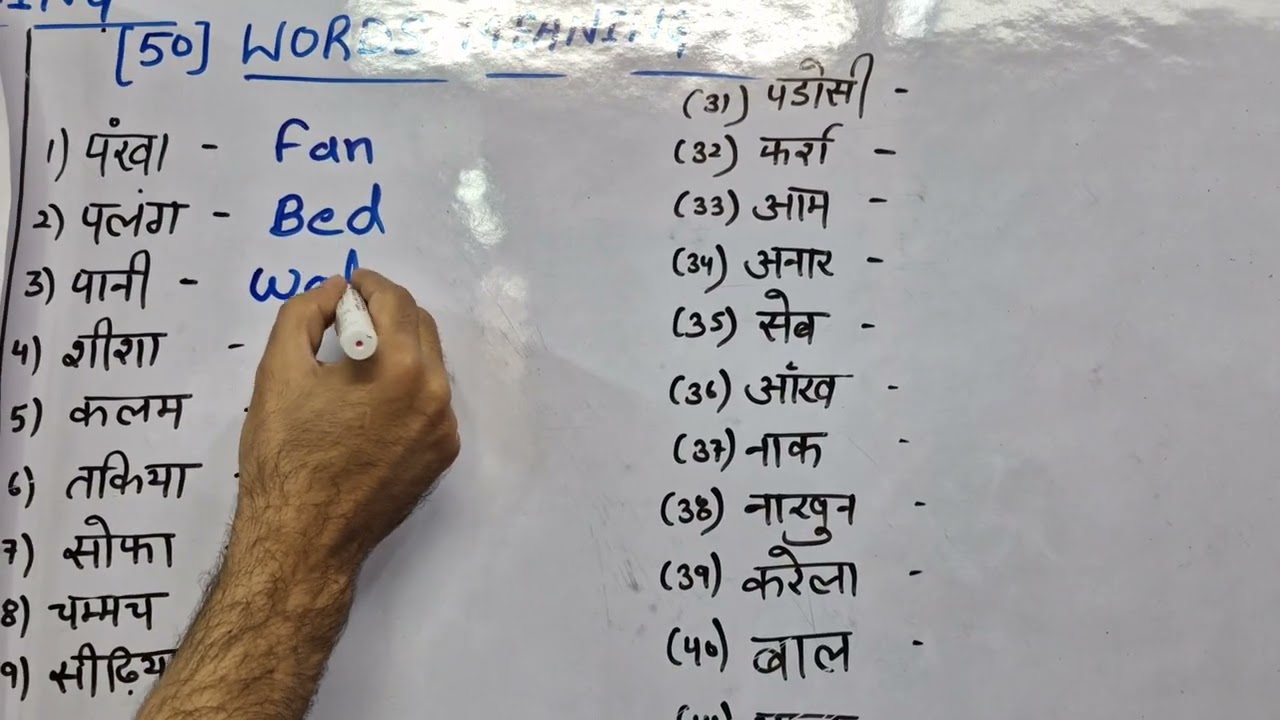 [50] WORDS MEANING
1) पंखा - Fan
2) पलंग - Bed
3) पानी - Wat
4) शीशा -
5) कलम -
6) तकिया -
7) सोफा
8) चम्मच
9) सीढ़िया
(31) पडोसी -
(32) फर्श -
(33) आम -
(34) अनार -
(35) सेब -
(36) आँख -
(37) नाक -
(38) नाखुन -
(39) करेला -
(40) बाल -